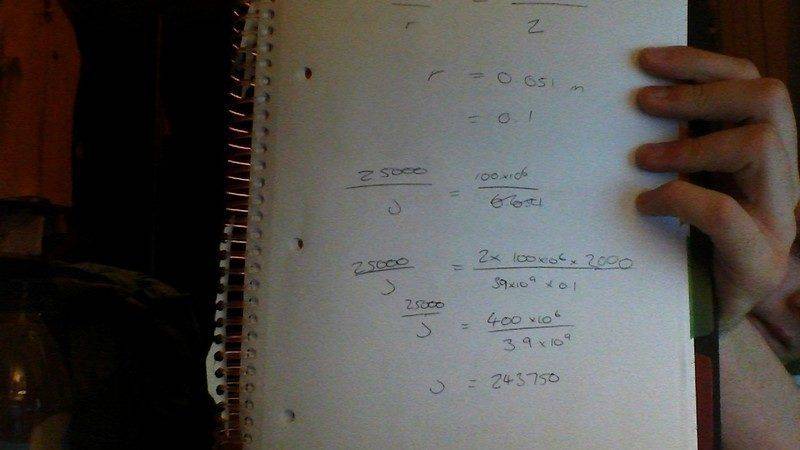 r = 2
r = 0.051 m
= 0.1
25000 / J = 100×10⁶ / 0.051
25000 / J = 2 × 100×10⁶ × 2000 / 39×10⁹ × 0.1
25000 / J = 400 × 10⁶ / 3.9 × 10⁹
J = 243750